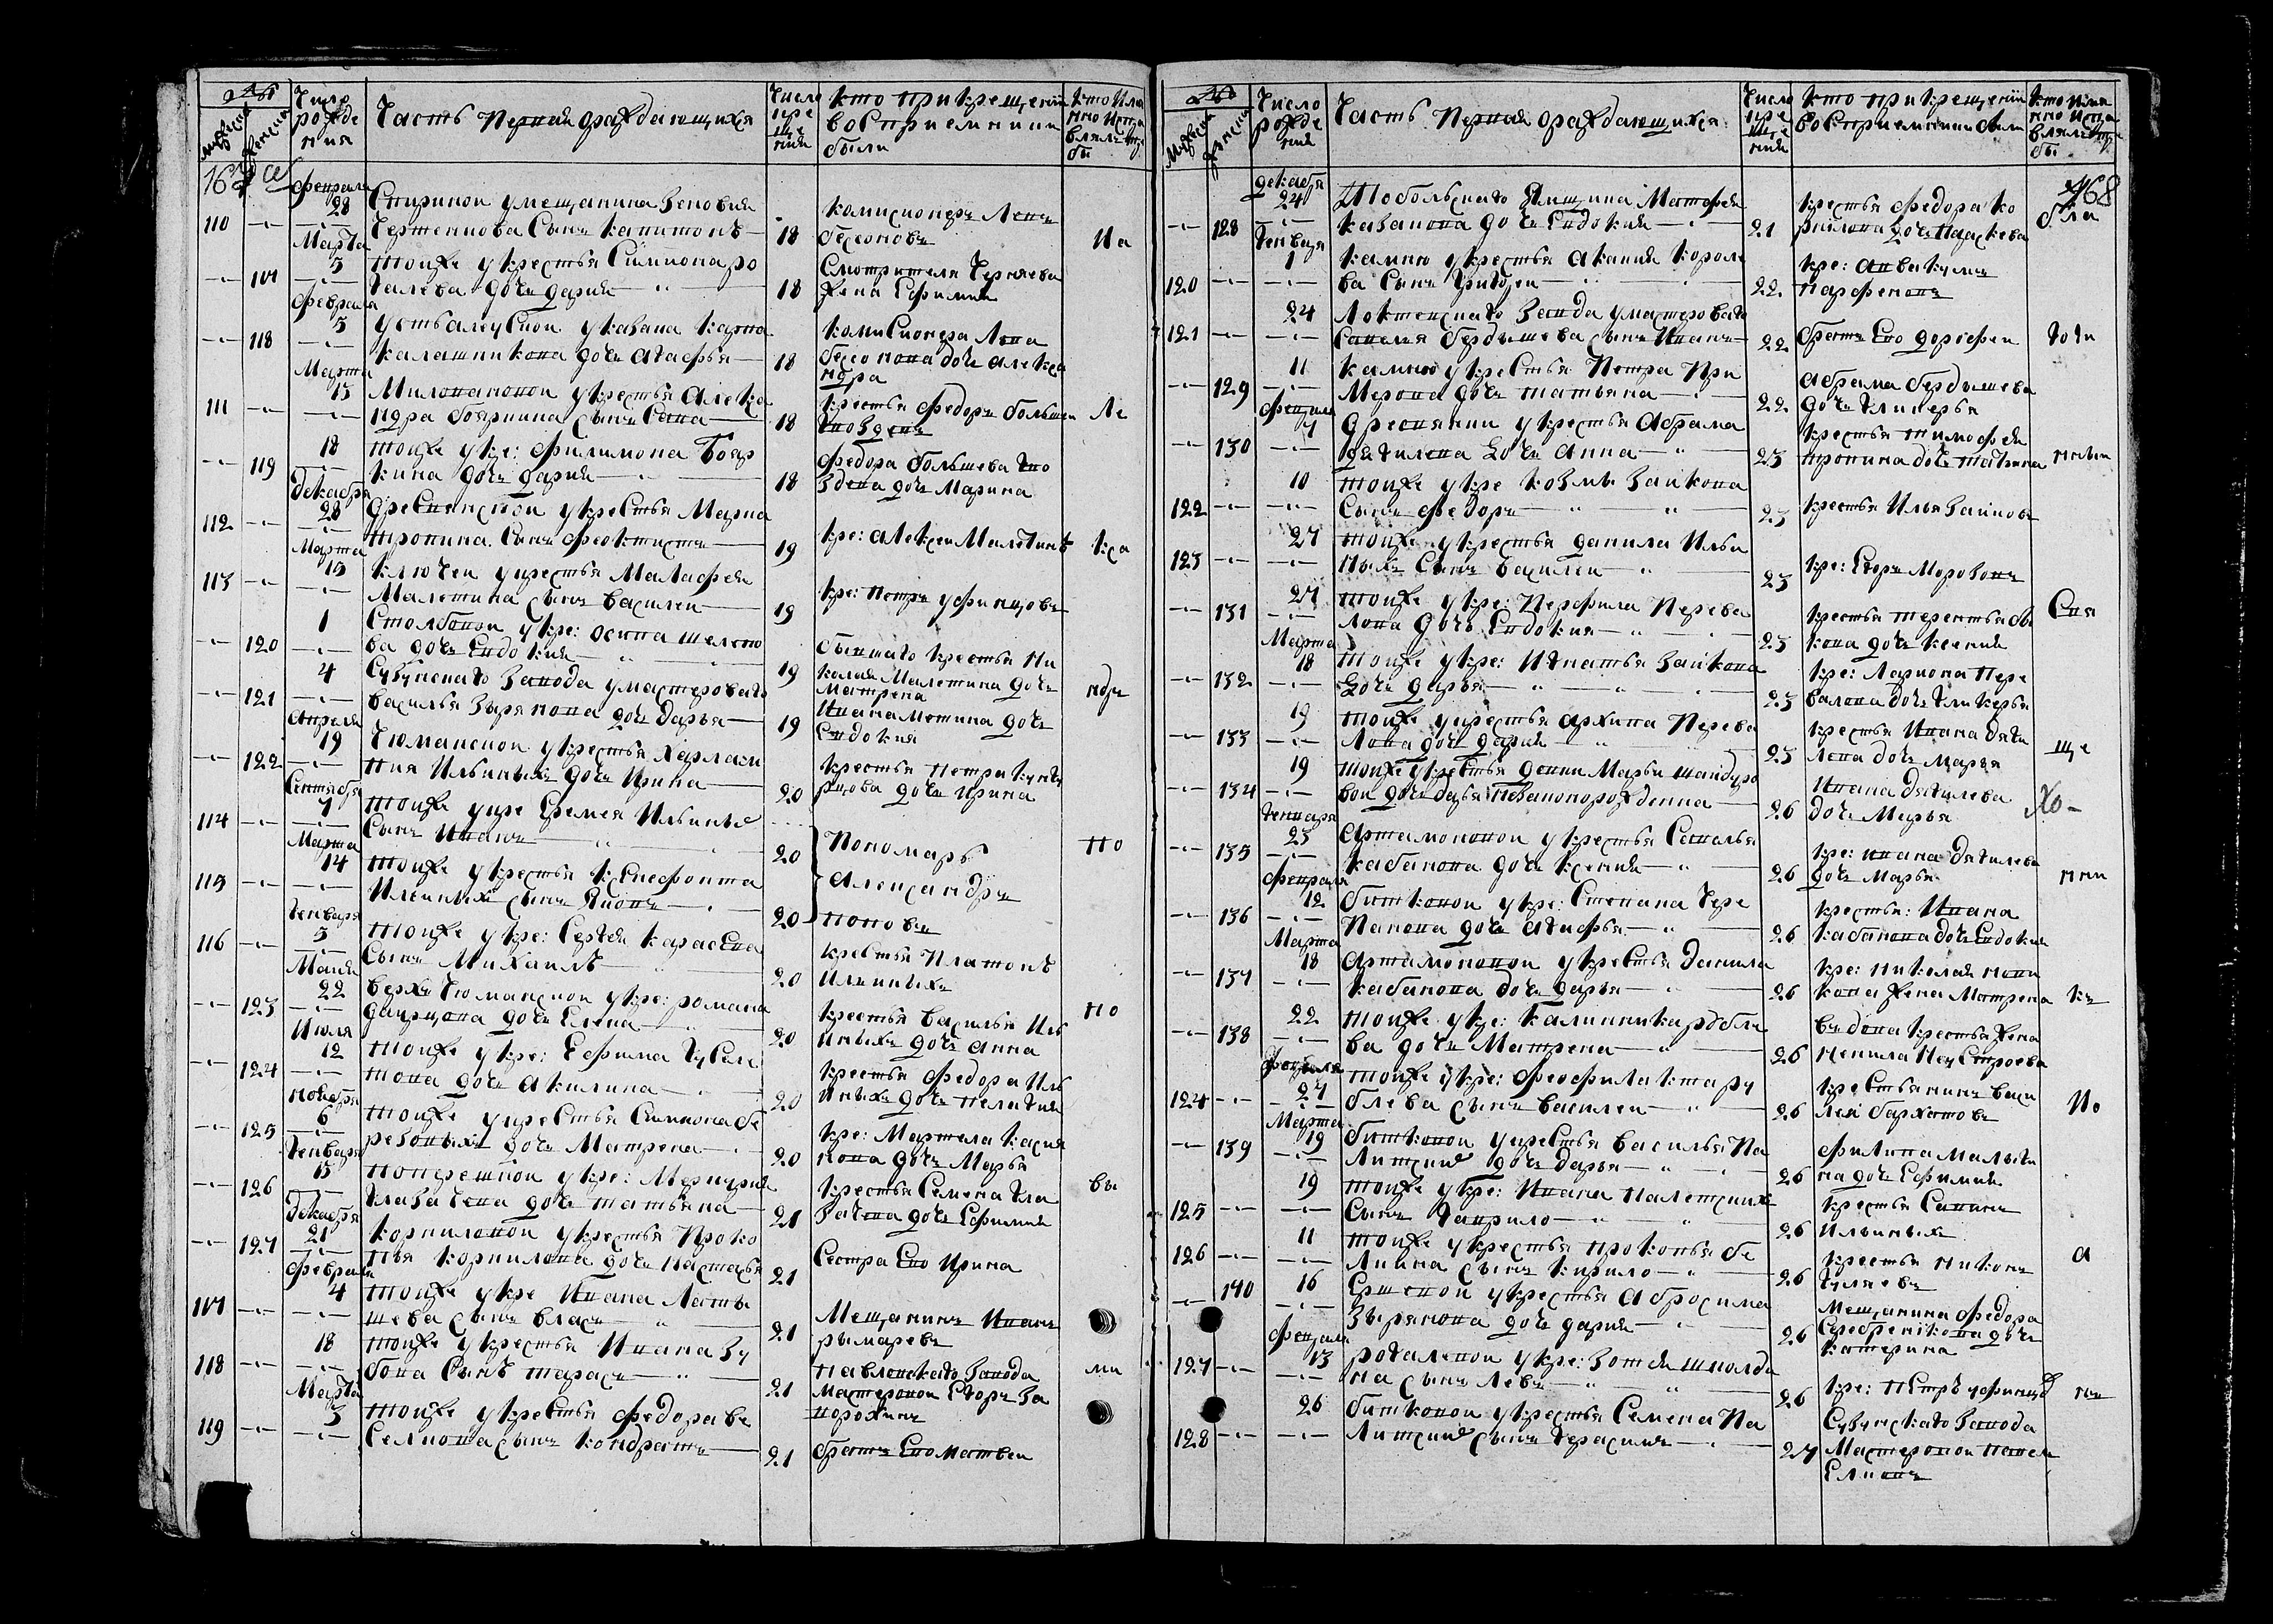 Число рожде ния
Часть Первая ораждающихся
Число кре ще ния
кто при крещении восприемники были
110 февраля 28 Спиринои умещанина Зеновия
Черженцова Сынъ капитонъ 18
камисионеръ Леон
бесоновъ
117 Марта 5 тоиже укрестья Симиона ро
галева дочь дария 18
Смотрителя Черняева
жена Ефимия
118 февраля 5 казака карпа
калашникова дочь агафья 18
камисионера Леона
бесонова дочь алекса
ндра
111 Марта 15 Миловановои укрестья Алекса
ндра бояркина сынъ Сава 18
крестья федоръ большеи
гвоздевъ
119 18 тоиже укре: филимона Бояр
кина дочь дария 18
федора большева гво
здева дочь Марина
112 декабря 28 укрестья Марка
тропина Сынъ феоктистъ 19
кре: алексеи Малетинъ
113 Марта 15 ключеи укрестья Малафея
Малетина сынъ василеи 19
кре: петръ уфинцовъ
120 1 Столбовои укре: осипа шелпо
ва дочь Евдокия 19
крестья Ни
колая Малетина дочь
Матрена
121 4 Сузунскаго Завода умастероваго
василья Зырянова дочь дарья 19
Ивана Мотина дочь
Евдокия
122 апреля 19 Тюмансков укрестья Харлам
пия Ильиныхъ дочь Ирина 20
крестья петра кузне
цова дочь ирина
114 Сентября 7 тоиже укре Еремея Ильиныхъ
Сынъ Иванъ 20
Пономарь
115 Марта 14 тоиже укрестья ксенефонта
Ильиныхъ сынъ 20
Александръ
поповъ
116 генваря 5 тоиже укре: Сергея карасева
Сынъ Михаилъ 20
крестья Платонъ
Ильиныхъ
123 Маия 22 верхъ Тюманскои укре: романа
дочь Елена 20
крестья василья Иль
иныхъ дочь анна
124 Июля 12 тоиже укре: Ефима
дочь акилина 20
крестья федора Иль
иныхъ дочь пелагия
125 ноября 6 тоиже укрестья Симиона бе
резовыхъ дочь Матрена 20
кре: Мартела касья
нова дочь Марья
126 генваря 15 поперешнои укре: Меркурия
глазачева дочь татьяна 21
крестья Семена гла
зачева дочь Ефимия
127 декабря 21 корниловои укрестья Проко
пья корнилова дочь настасья 21
Сестра Ево Ирина
117 февраля 4 тоиже укре Ивана Лапты
шева сынъ власъ 21
Мещанинъ Иванъ
рымаревъ
118 18 тоиже укрестья Ивана Зу
бова Сынъ тарасъ 21
Павловскаго Завода
Мастеровои Егоръ За
порожинъ
119 Марта 3 тоиже укрестья федора ве
Селкова сынъ кондратеи 21
братъ Ево Матвеи
Число рожде ния
Часть Первая ораждающихся
Число кре ще ния
кто при крещении восприемники были
168
128 декабря 24 Тобольскаго Ямщина Матфея
дочь Евдокия 21
крестья федора ко
рнилова дочь Параскева
120 генваря 1 камню укрестья акакия короле
ва Сынъ григореи 22
кре: аввакумъ
парфеновъ
121 24 Локтевскаго Завода умастероваго
Савелья бердышева сынъ Иванъ 22
братъ Ево дорофеи
129 11 камню укрестья Петра При
Мерова дочь татьяна 22
абрама бердышева
дочь гликерья
130 февраля 7 укрестья абрама
дягилева дочь анна 23
крестья тимофея
тропина дочь татьяна
122 10 тоиже укре козмы Заикова
Сынъ федоръ 23
крестья Илья Заиковъ
123 27 тоиже укрестья данила Ильи
ныхъ Сынъ василеи 23
кре: Егоръ Морозовъ
131 27 тоиже укре: Перфила Перева
лова дочь Евдокия 23
крестья терентья
кова дочь ксения
132 Марта 18 тоиже укре: Игнатья Заикова
дочь дарья 23
кре: Лариона Пере
валова дочь гликерья
133 19 тоиже укрестья архипа Перева
лова дочь дария 23
крестья Ивана дяги
лева дочь Марья
134 19 тоиже укрестья девки Марьи шандуро
вои дочь дарья незаконорожденна 26
Ивана дягилева
дочь Марья
135 генваря 23 артамоновои укрестья Савелья
кабанова дочь ксения 26
кре: ивана дягилева
дочь Марья
136 февраля 12 битковои укре: Степана Чере
панова дочь агафья 26
крестья: Ивана
кабанова дочь Евдокия
137 Марта 18 артамоновои укрестья данила
кабанова дочь дарья 26
кре: николая нови
кова жена Матрена
138 22 тоиже укре: калинника рубле
ва дочь Матрена 26
вдова крестья жена
ненила Неустроева
124 февраля 27 тоиже укре: феофилакта ру
блева сынъ василеи 26
крестьянинъ васи
леи бархатовъ
139 Марта 19 битковои укрестья василья Па
Литскихъ дочь дарья 26
филипа Малыги
на дочь Ефимия
125 19 тоиже укре: Ивана палетскихъ
Сынъ гаврило 26
крестья Савинъ
Ильиныхъ
126 11 тоиже укрестья прокопья бе
Лкина сынъ кирило 26
крестья никонъ
гуляевъ
140 16 Ершовои укрестья абросима
Зырянова дочь дария 26
Мещанина федора
Серебреникова дочь
катерина
127 февраля 13 рогалевои укре: Зотея шмолда
на сынъ Левъ 26
кре: петръ уфинцовъ
128 26 битковои укрестья Семена Па
Литскихъ сынъ герасимъ 27
Сузунскаго Завода
Мастеровои